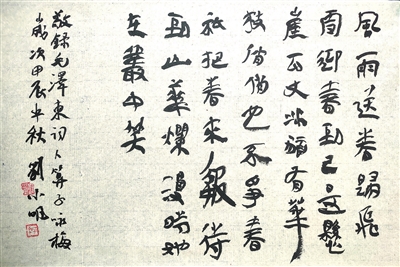 風雨送春歸飛
雪迎春到已是懸
崖百丈冰猶有華
枝俏俏也不爭春
祇把春來報待
到山華爛漫時她
在叢中笑
敬録毛澤東詞卜算子咏梅
歲次甲辰年秋 劉小